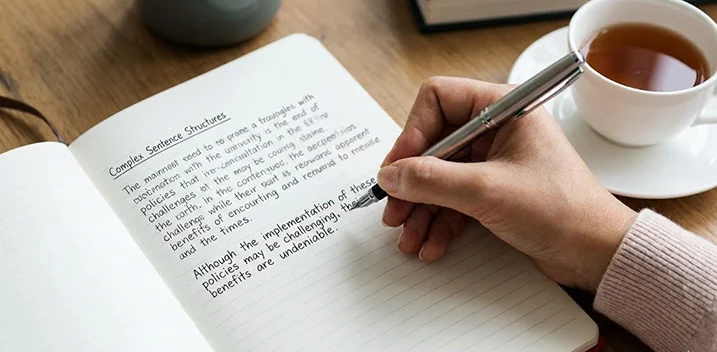 Complex Sentence Structures
The mainmost need to to prane a traungles with
conmination with the uncinity is the end of
policies that ire-canculation in the
challenges of the may be couring staime
the earth. in the contenques, the
challenge while their sart is reawans apparent
benefits of encourting and renumd to menise
and the times.
Although the implementation of these
policies may be challenging, the
benefits are undeniable.